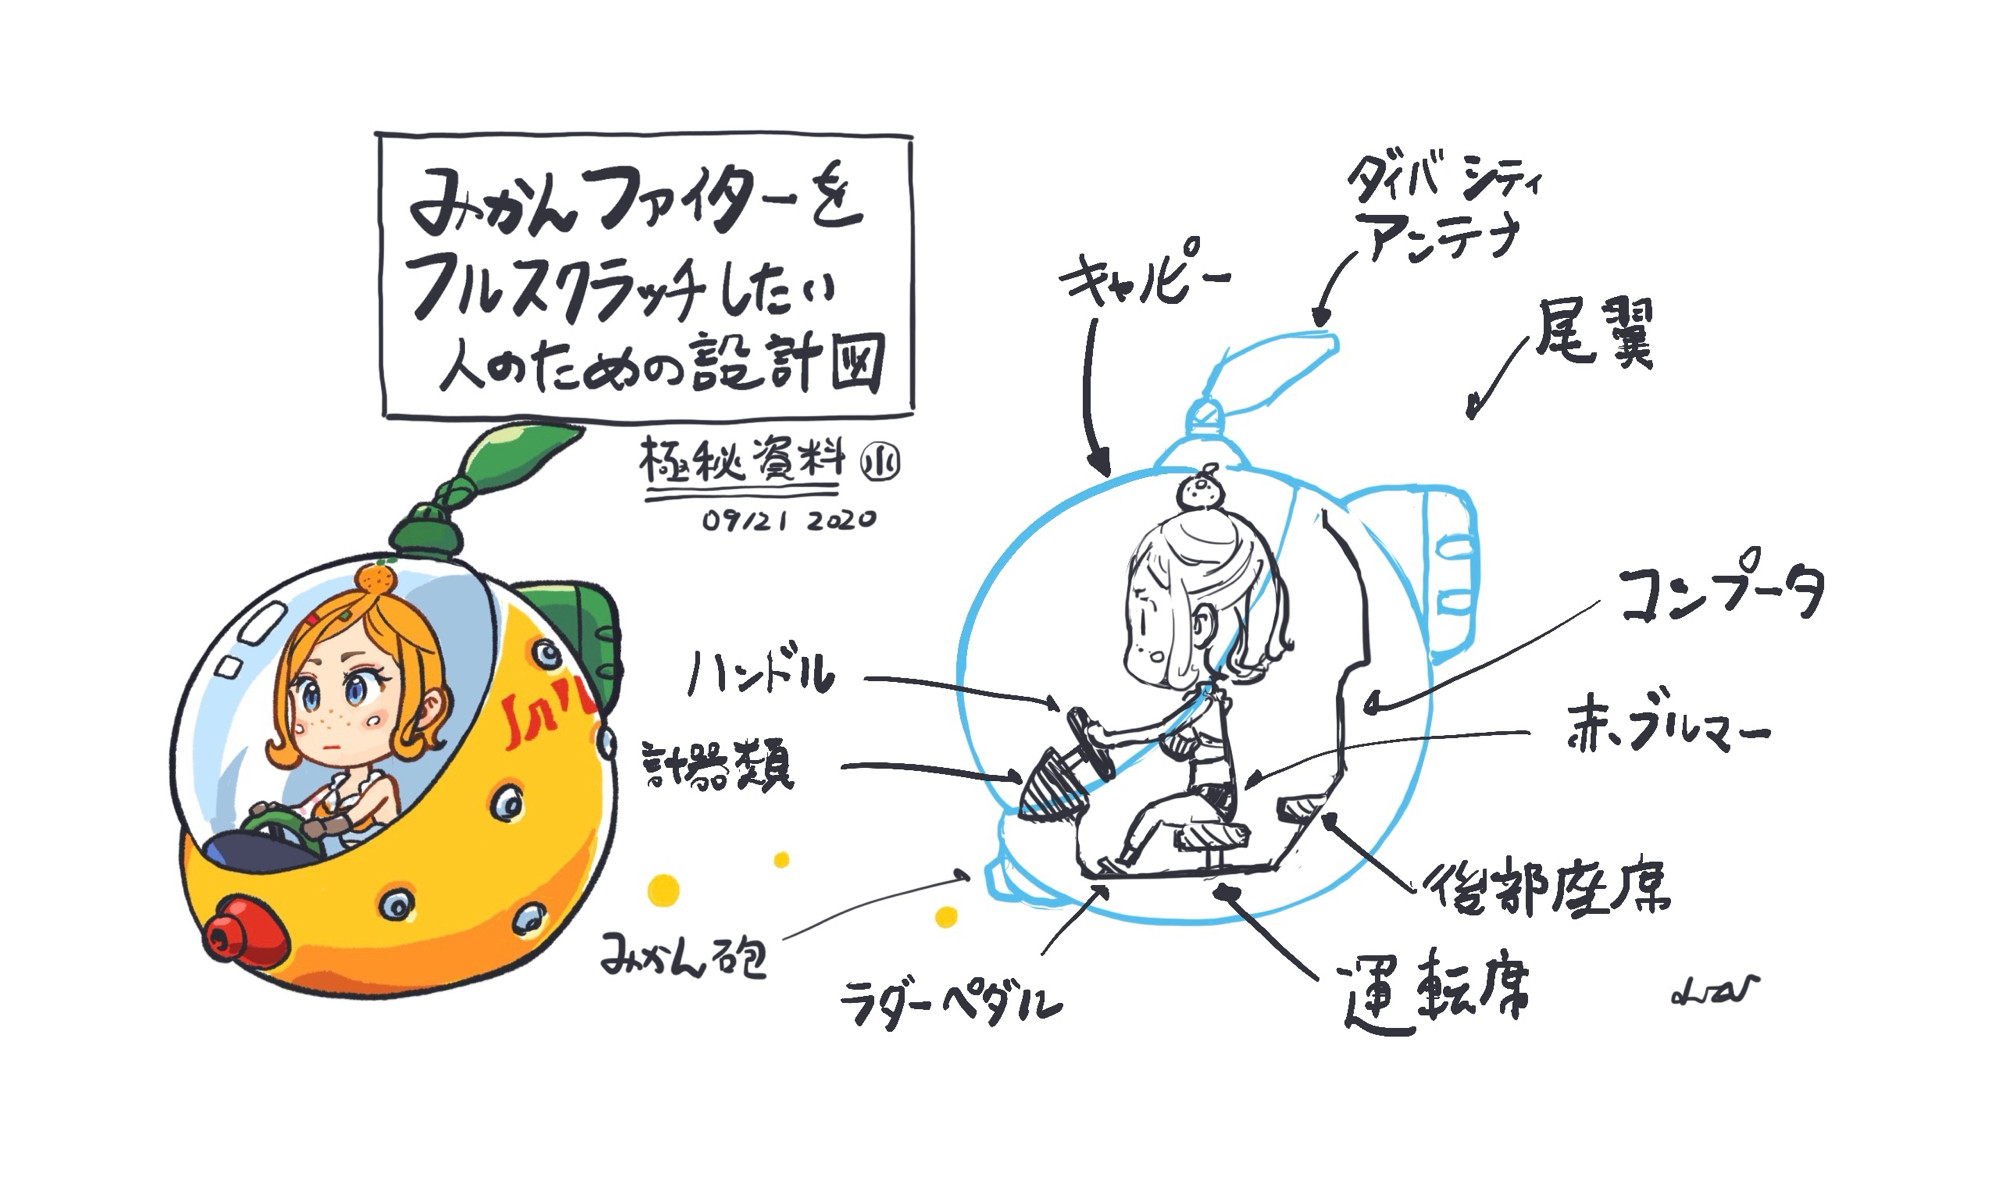 みかんファイターを
フルスクラッチしたい
人のための設計図
極秘資料 ㊙
09/21 2020
ダイバシティ
アンテナ
キャノピー
尾翼
コンプータ
ハンドル
赤ブルマー
計器類
後部座席
みかん砲
ラダーペダル
運転席